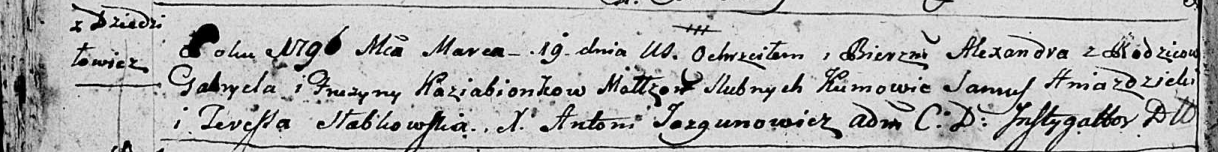 z Dziedzi
łowicz
Roku 1796 Mca Marca 19 dnia Us. Ochrzciłem i Bierzm Alexandra z Rodzicow
Gabryela i Fruzyny Kaziabionkow Małżow slubnych Kumowie Janus Hniazdzicki
i Teressa Słabkowska. X. Antoni Jazgunowicz adm C: D: Instygattor DW